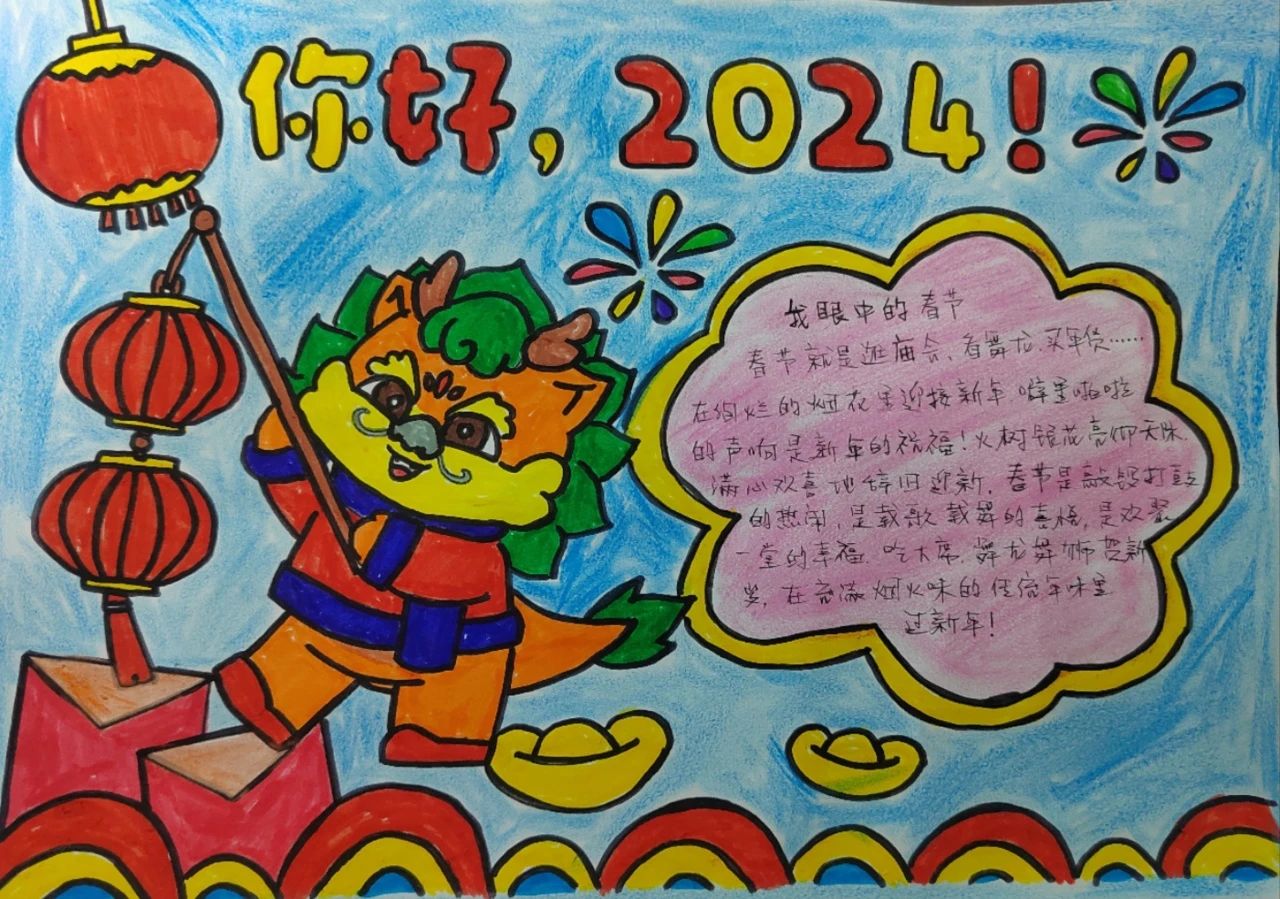 你好，2024！
我眼中的春节
春节就是逛庙会、看舞龙、买年货……
在绚烂的烟花里迎接新年 噼里啪啦
的声响是新年的祝福！火树银花亮彻天际.
满心欢喜地辞旧迎新，春节是敲锣打鼓
的热闹，是载歌载舞的喜悦，是欢聚
一堂的幸福. 吃大席. 舞龙舞狮贺新
岁，在充满烟火味的佳宿年味里
过新年！